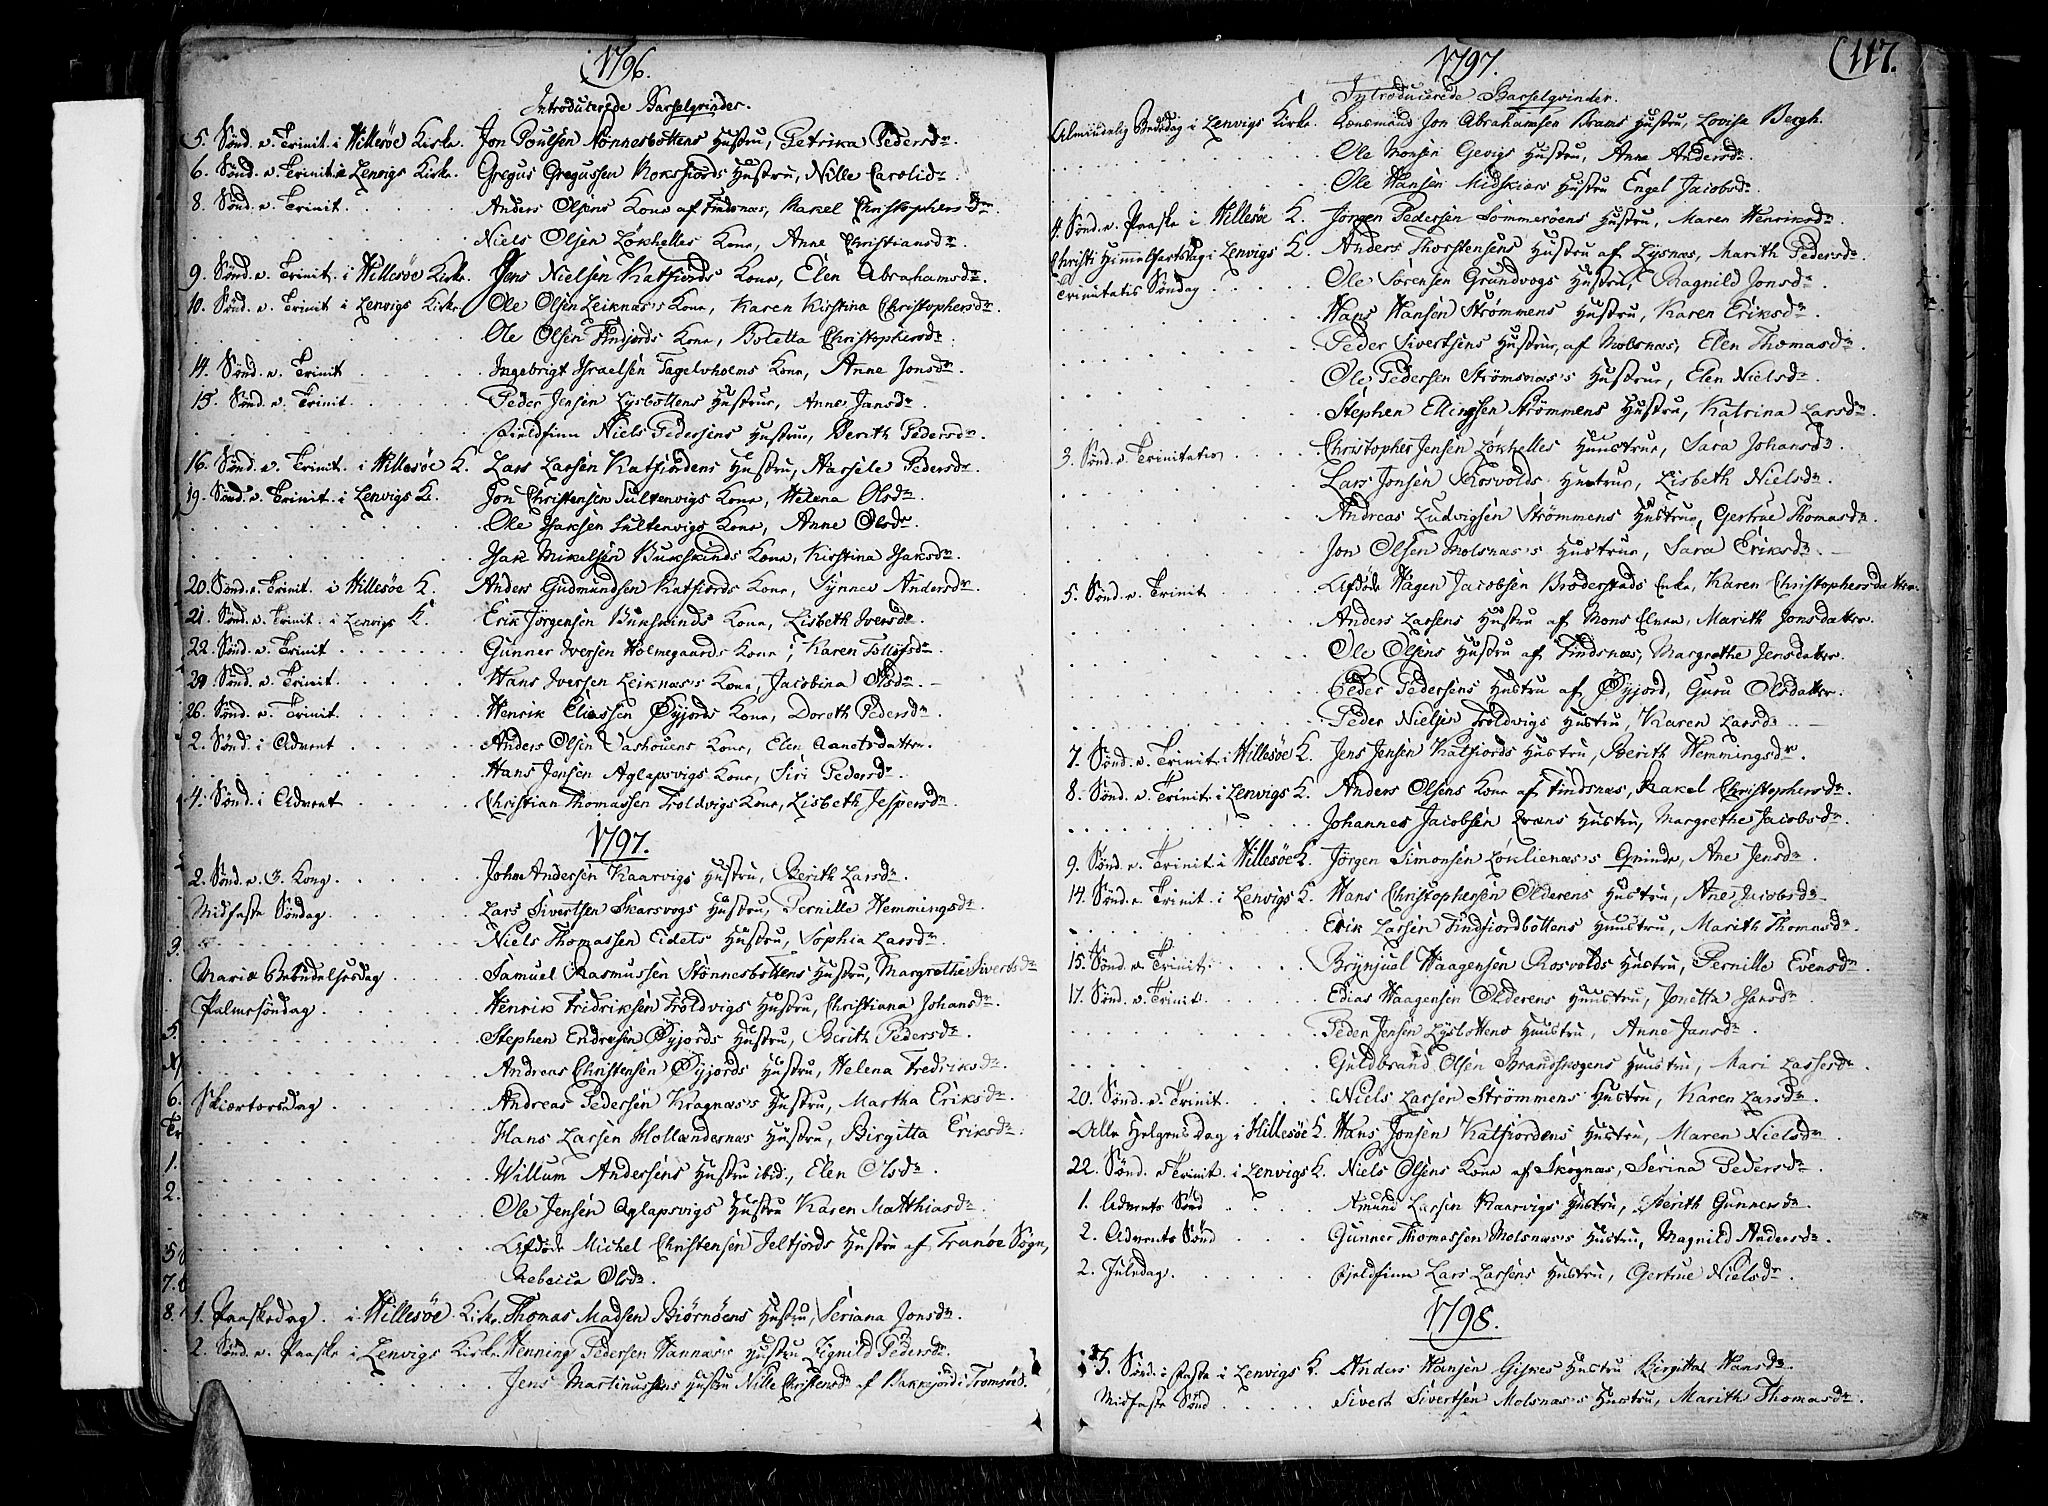 1796.
Introducerede Barselqvinder.
5. Sönd. e. Trinit. i Hillesøe Kirke. Jon Poulsen Stönnesbottens Hustru, Petrika Pedersdr.
6. Sönd. e. Trinit. i Lenvigs Kirke. Gregus Gregussen Rokssfiords Hustru, Nille Carolidr.
8. Sönd. e. Trinit. Anders Olsens Kone af Findsnæs, Rakel Christophersdr.
Niels Olsen Løkhelles Kone, Anne Christiansdr.
9. Sönd. e. Trinit. i Hillesøe Kirke. Jens Nielsen Katfiords Kone, Elen Abrahamsdr.
10. Sönd. e. Trinit i Lenvigs Kirke Ole Olsen Leiknæs's Kone, Karen Kirstina Christophersdr.
Ole Olsen Findjords Kone, Boletta Christophersdr.
14. Sönd. e. Trinit Ingebrigt Israelsen Tagelvholms Kone, Anne Jonsdr.
15. Sönd. e. Trinit. Peder Jensen Lysbottens Hustrue, Anne Jansdr.
Fieldfinn Niels Pedersens Hustrue, Berith Pedersdr.
16. Sönd. e. Trinit. i Hillesøe K. Lars Larsen Katfiordens Hustru, Aarsile Pedersdr.
19. Sönd. e. Trinit. i Lenvigs K. Jon Christensen Sultenvigs Kone, Helena Olsdr.
Ole Isaksen Sultenvigs Kone, Anne Olsdr.
Isak Mikelsen Bukskinds Kone, Kirstina Isaksdr.
20. Sönd. e. Trinit. i Hillesøe K. Anders Gudmundsen Katfiords Kone, Synnev Andersdr.
21. Sönd. e. Trinit. i Lenvigs K. Erik Jörgensen Bukskinds Kone, Lisbeth Iversdr.
22. Sönd. e. Trinit Gunner Iversen Holmegaards Kone, Karen Tollofsdr.
Sönd. e. Trinit. Hans Iversen Leiknæs's Kone, Jacobina Olsdr.
26. Sönd. e. Trinit. Henrik Eliassen Øyjords Kone, Doroth Pedersdr.
2. Sönd. i Advent Anders Olsen Vashouens Kone, Elen Aanetsdatter.
Hans Jensen Aglapsvigs Kone, Siri Pedersdr.
4. Sönd. i Advent Christian Thomassen Troldvigs Kone, Lisbeth Jespersdr.
1797.
2. Sönd. e. 3. Kong. John Andersen Kaarvigs Hustru, Berith Larsdr.
Midfaste Söndag. Lars Sivertsen Skarsvogs Hustru, Pernille Hemmingsdr.
Niels Thomassen Eidets Hustru, Sophia Larsdr.
Mariæ Bebudelsesdag Samuel Rasmussen Stönnesbottens Hustru, Margrethe Sivertsdr
Palmesöndag. Henrik Fridriksen Troldvigs Hustru, Christiana Johansdr.
Stephen Endresen Øyjords Hustru, Berith Pedersdr.
Andreas Christensen Øyjords Hustru, Helena Fredriksdr.
Skiærtorsdag. Andreas Pedersen Kragnæs's Hustru, Martha Eriksdr.
Hans Larsen Hollændernæs Hustru, Birgitta Eriksdr.
Willum Andersens Hustru ibid., Elen Olsdr.
Ole Jensen Aglapsvigs Hustru Karen Matthiasdr.
Afdøde Michel Christensen Jeltjords Hustru af Tranöe Sogn,
Rebecca Olsdr.
1. Paaskedag. i Hillesøe Kirke Thomas Madsen Biørnöens Hustru, Seriana Jonsdr.
2. Sönd. e. Paaske i Lenvigs Kirke. Henning Pedersen Vannæs's Hustru Zignild Pedersdr.
Jens Martinussens Hustru Nille Christensdr af Bakkejord i Tromsøe S.
1797.
(117.
Introducerede Barselqvinder.
Almindelig Bededag i Lenvigs Kirke. Lensmand Jon Abrahamsen Brams Hustru, Lovise Bergh.
Ole Monsen Gevigs Hustru, Anne Andersdr.
Ole Hansen Midskiærs Hustru Engel Jacobsdr.
4. Sönd. e. Paaske i Hillesøe K. Jörgen Pedersen Sommeröens Hustru, Maren Henriksdr.
Christi Himmelfartsdag i Lenvigs K. Anders Thorstensens Hustru af Lysnæs, Marith Pedersdr.
Trinitatis Söndag Ole Sörensen Grundvogs Hustru, Magnild Jonsdr.
Hans Hansen Strömmens Hustru, Karen Eriksdr.
Peder Sivertsens Hustrue, af Molsnæs, Elen Thomasdr.
Ole Pedersen Strömsnæs's Hustrue, Elen Nielsdr.
Stephen Ellingsen Strömmens Hustru, Katrina Larsdr.
3. Sönd. e. Trinitatis Christopher Jensen Løkhelles Huustrue, Sara Johansdr
Lars Jonsen Rosvolds Hustrue, Lisbeth Nielsdr.
Andreas Ludvigsen Strömmens Hustrue, Gertrue Thomasdr.
Jon Olsen Molsnæs's Hustrue, Sara Eriksdr.
5. Sönd. e. Trinit Afdøde Hagen Jacobsen Broderstads Enke, Karen Christophersdatter.
Anders Larsens Hustru af Mons Elven, Marith Jonsdatter.
Ole Olsens Hustru af Findsnæs, Margrethe Jensdatter.
Peder Pedersens Hustru af Øyjord, Guru Olsdatter.
Peder Nielsen Troldvigs Hustru, Karen Larsdr.
7. Sönd. e. Trinit. i Hillesøe K. Jens Jensen Katfiords Hustru, Berith Hemmingsdr.
8. Sönd. e. Trinit. i Lenvigs K. Anders Olsens Kone af Findsnæs, Rakel Christophersdr.
Johannes Jacobsen Qvæns Hustru, Margrethe Jacobsdr.
9. Sönd. e. Trinit. i Hillesøe K. Jörgen Simonsen Løklienæs's Qvinde, Ane Jensdr.
14. Sönd. e Trinit. i Lenvigs K. Hans Christophersen Olderens Hustru, Ane Jacobsdr
Erik Larsen Findfiordbottens Huustru, Marith Thomasdr.
15. Sönd. e. Trinit. Brynjuel Haagensen Rosvolds Hustru, Pernille Evensdr.
17. Sönd. e. Trinit. Edias Haagensen Olderens Huustru, Jonetta Hansdr
Peder Jensen Lysbottens Huustru, Anne Jansdr.
Guldbrand Olsen Brandskogens Huustru, Mari Lassesdr.
20. Sönd. e. Trinit. Niels Larsen Strömmens Hustru, Karen Larsdr.
Alle Helgens Dag i Hillesøe K. Hans Jonsen Katfiordens Hustru, Maren Nielsdr.
22. Sönd. e Trinit. i Lenvigs K. Niels Olsens Kone af Skognæs, Serina Pedersdr.
1. Advents Sönd Amund Larsen Kaarvigs Hustru, Berith Gunnersdr
2. Advents Sönd Gunner Thomassen Molsnæs's Hustru, Magnild Andersdr.
2. Juledag. Fjeldfinn Lars Larsens Hustru, Gertrue Nielsdr.
1798.
5. Sönd. i Faste i Lenvigs K. Anders Hansen Gisnes Hustru Birgitta Hansdr.
Midfaste Sönd Sivert Sivertsen Molsnæs's Hustru, Marith Thomasdr.